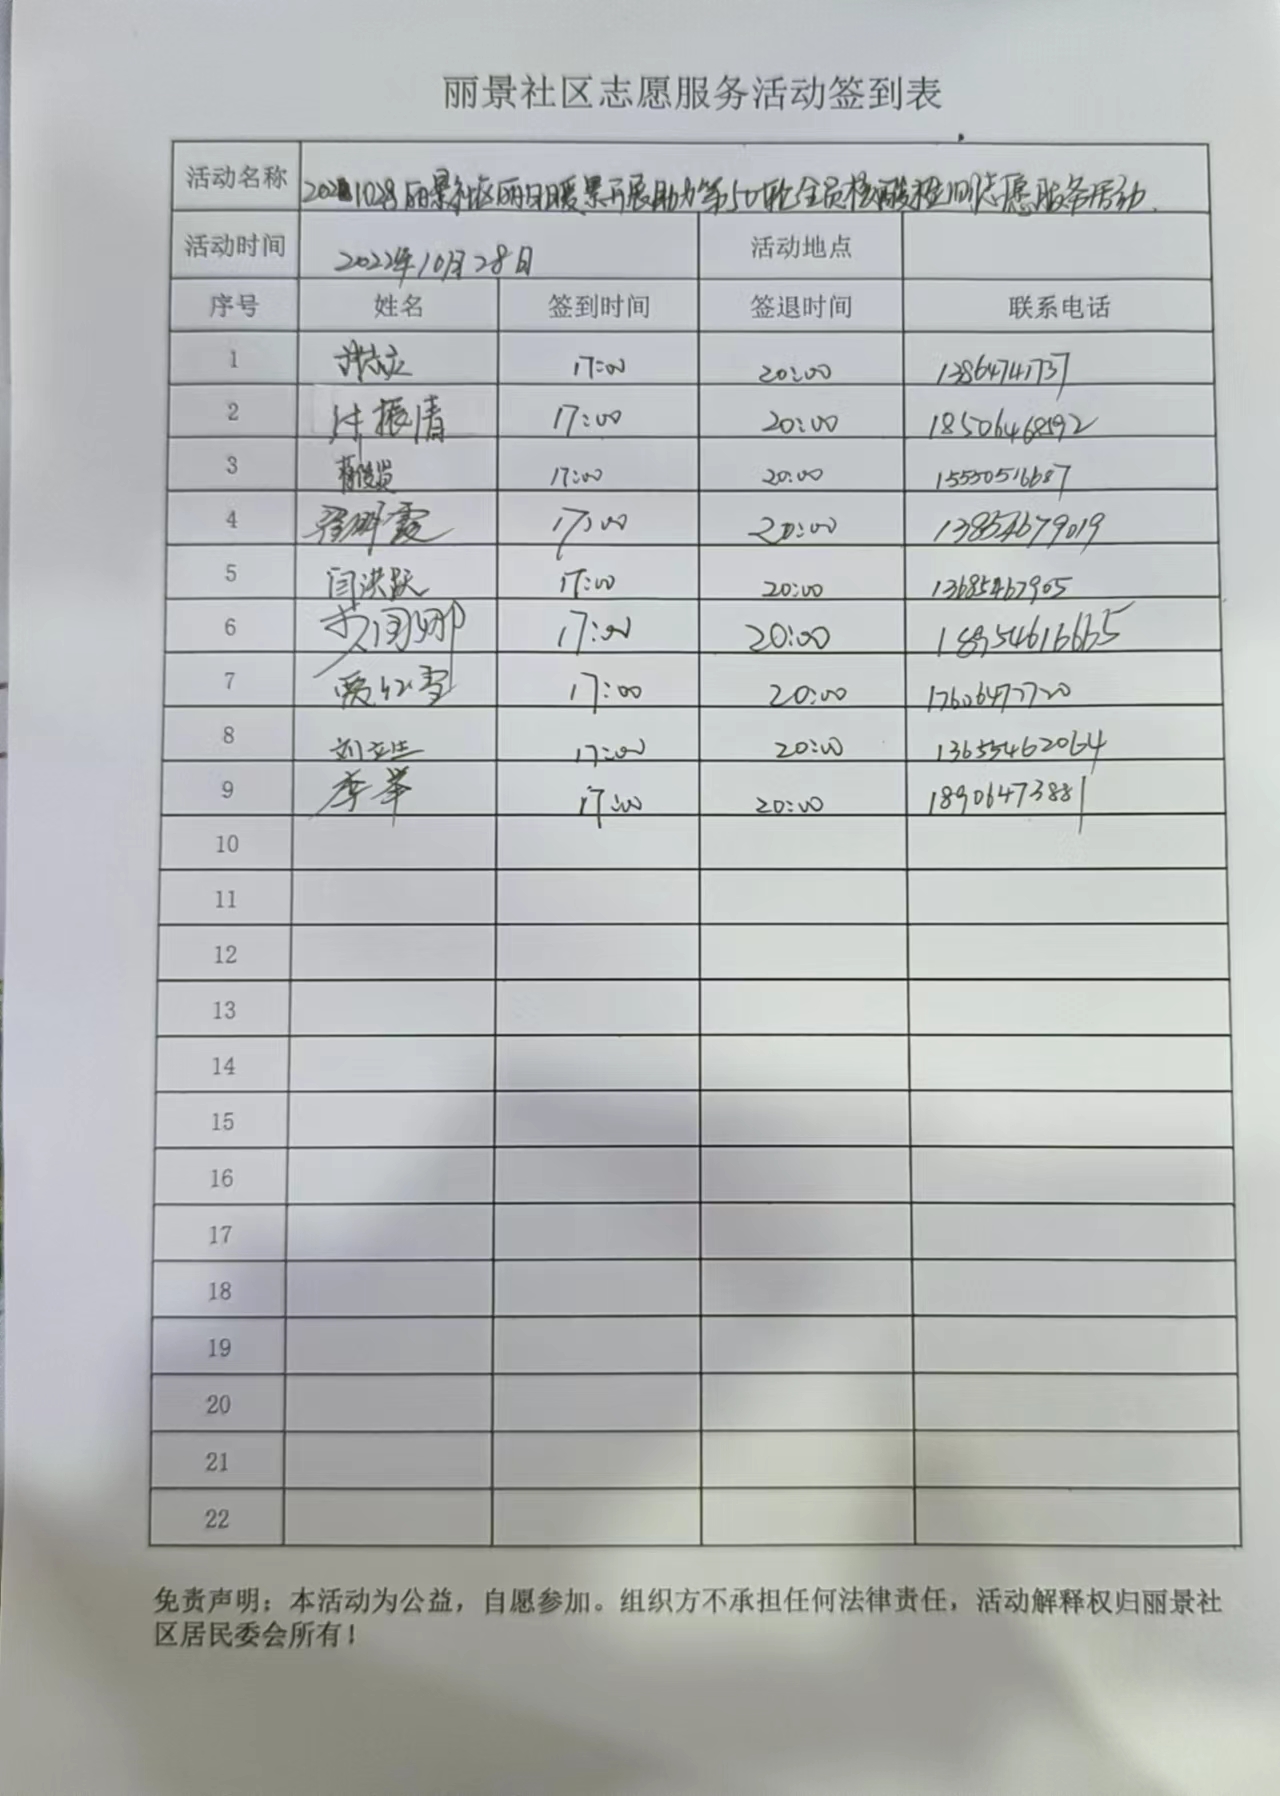 丽景社区志愿服务活动签到表
活动名称 20221028丽景社区丽日暖景开展助力第50轮全员核酸检测志愿服务活动
活动时间 2022年10月28日 活动地点
序号 姓名 签到时间 签退时间 联系电话
1 17:00 20:00 13864741737
2 振清 17:00 20:00 18506468592
3 17:00 20:00 15550516687
4 霞 17:00 20:00 13854679019
5 闫洪跃 17:00 20:00 13685467905
6 17:00 20:00 18954616665
7 贾红雪 17:00 20:00 17606472720
8 刘立生 17:00 20:00 13655462064
9 李举 17:00 20:00 18906473881
10
11
12
13
14
15
16
17
18
19
20
21
22
免责声明：本活动为公益，自愿参加。组织方不承担任何法律责任，活动解释权归丽景社
区居民委会所有！